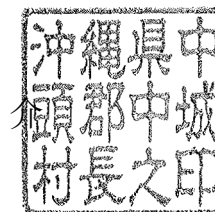 沖縄県中
頭郡中城
村長之印
介